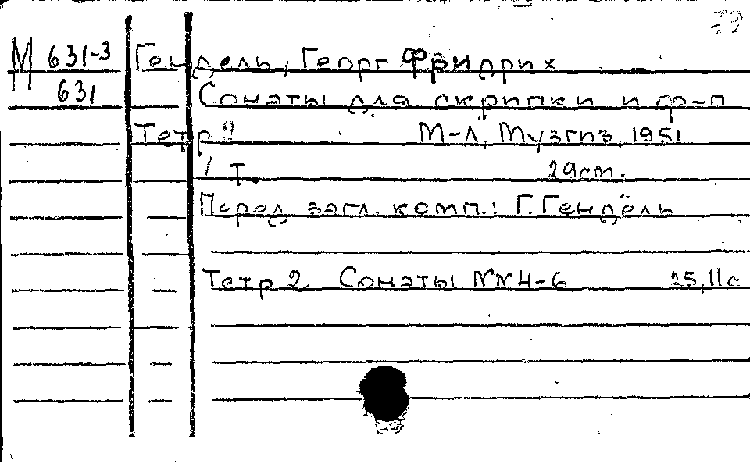 79
М 631-3 Гендель, Георг Фридрих
631 Сонаты для скрипки и ф-п
Тетр 2 М-Л, Музгиз, 1951
1 т. 29 cm.
Перед загл. комп.: Г. Гендель
Тетр 2. Сонаты №№ 4-6 25, 11 с